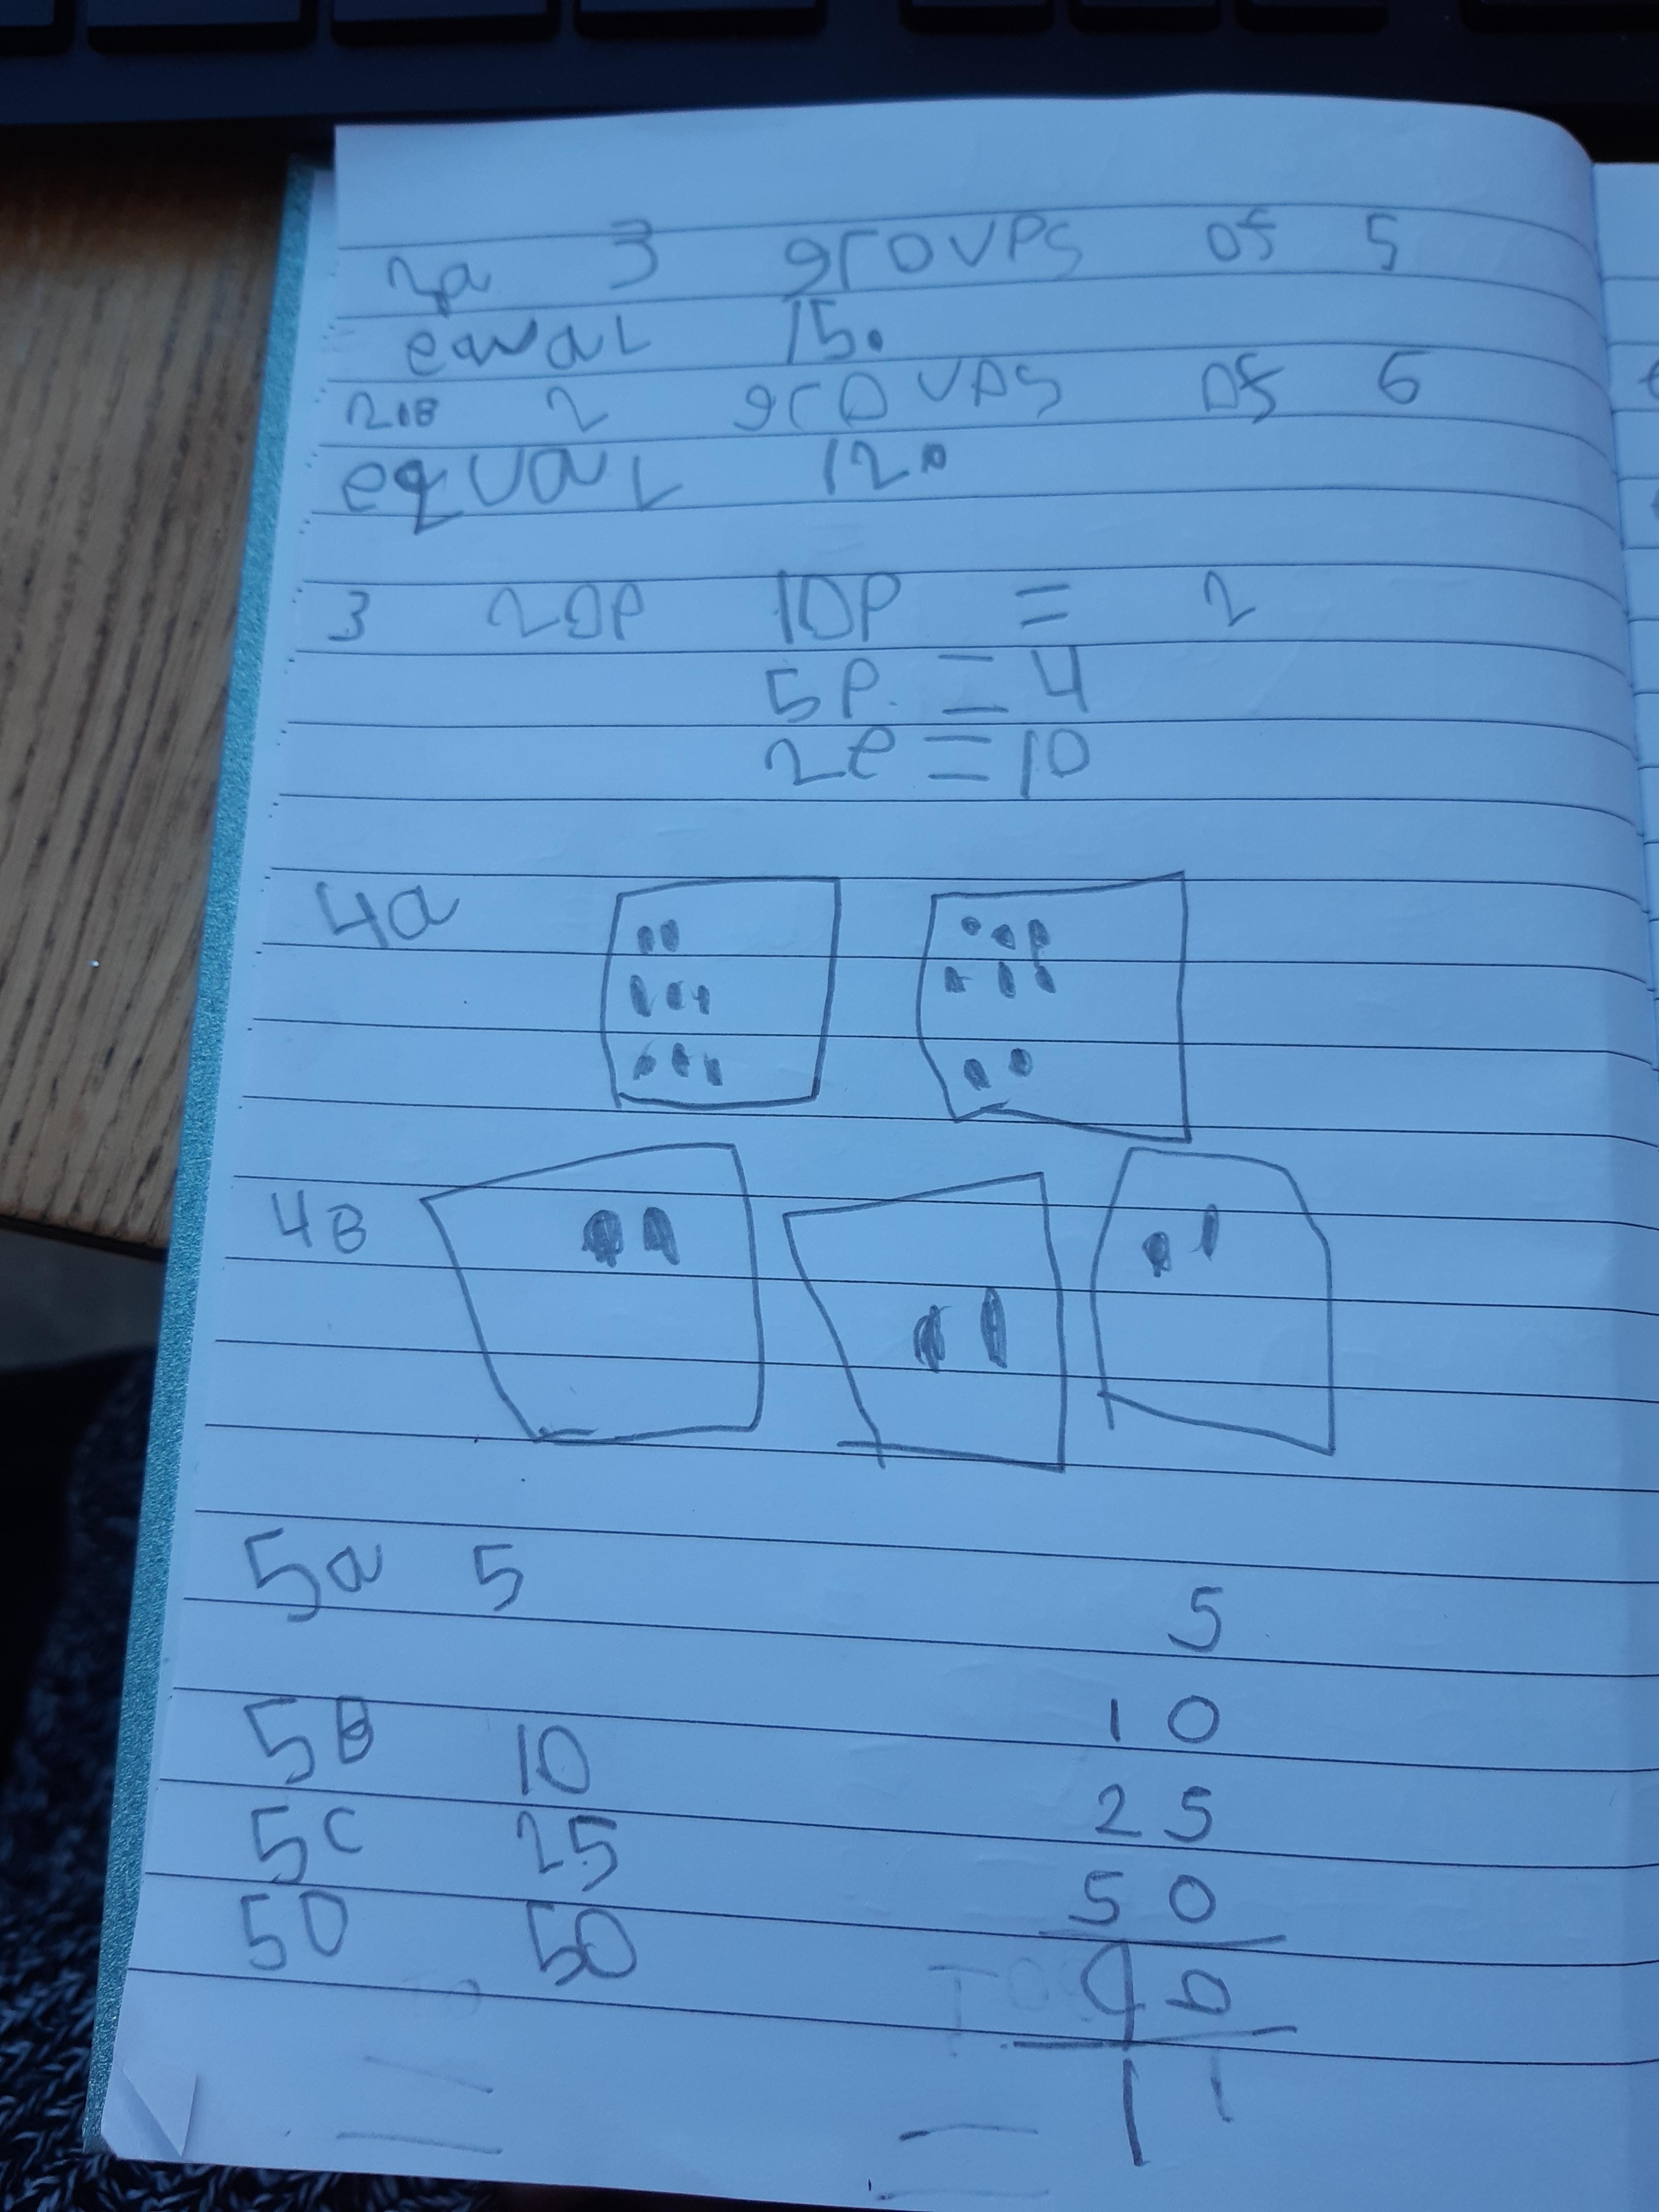 2a 3 groups of 5
equal 15.
2B 2 groups of 6
equal 12.
3 20p 10p = 2
5p = 4
2p = 10
4a
4B
5a 5
5
5B 10
10
5C 25
25
5D 50
50
90
11